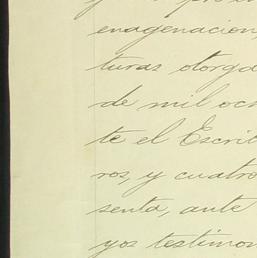 enagenacion,
turas otorga
de mil och
te el Escrib
ros, y cuatro
senta, ante
yos testimon